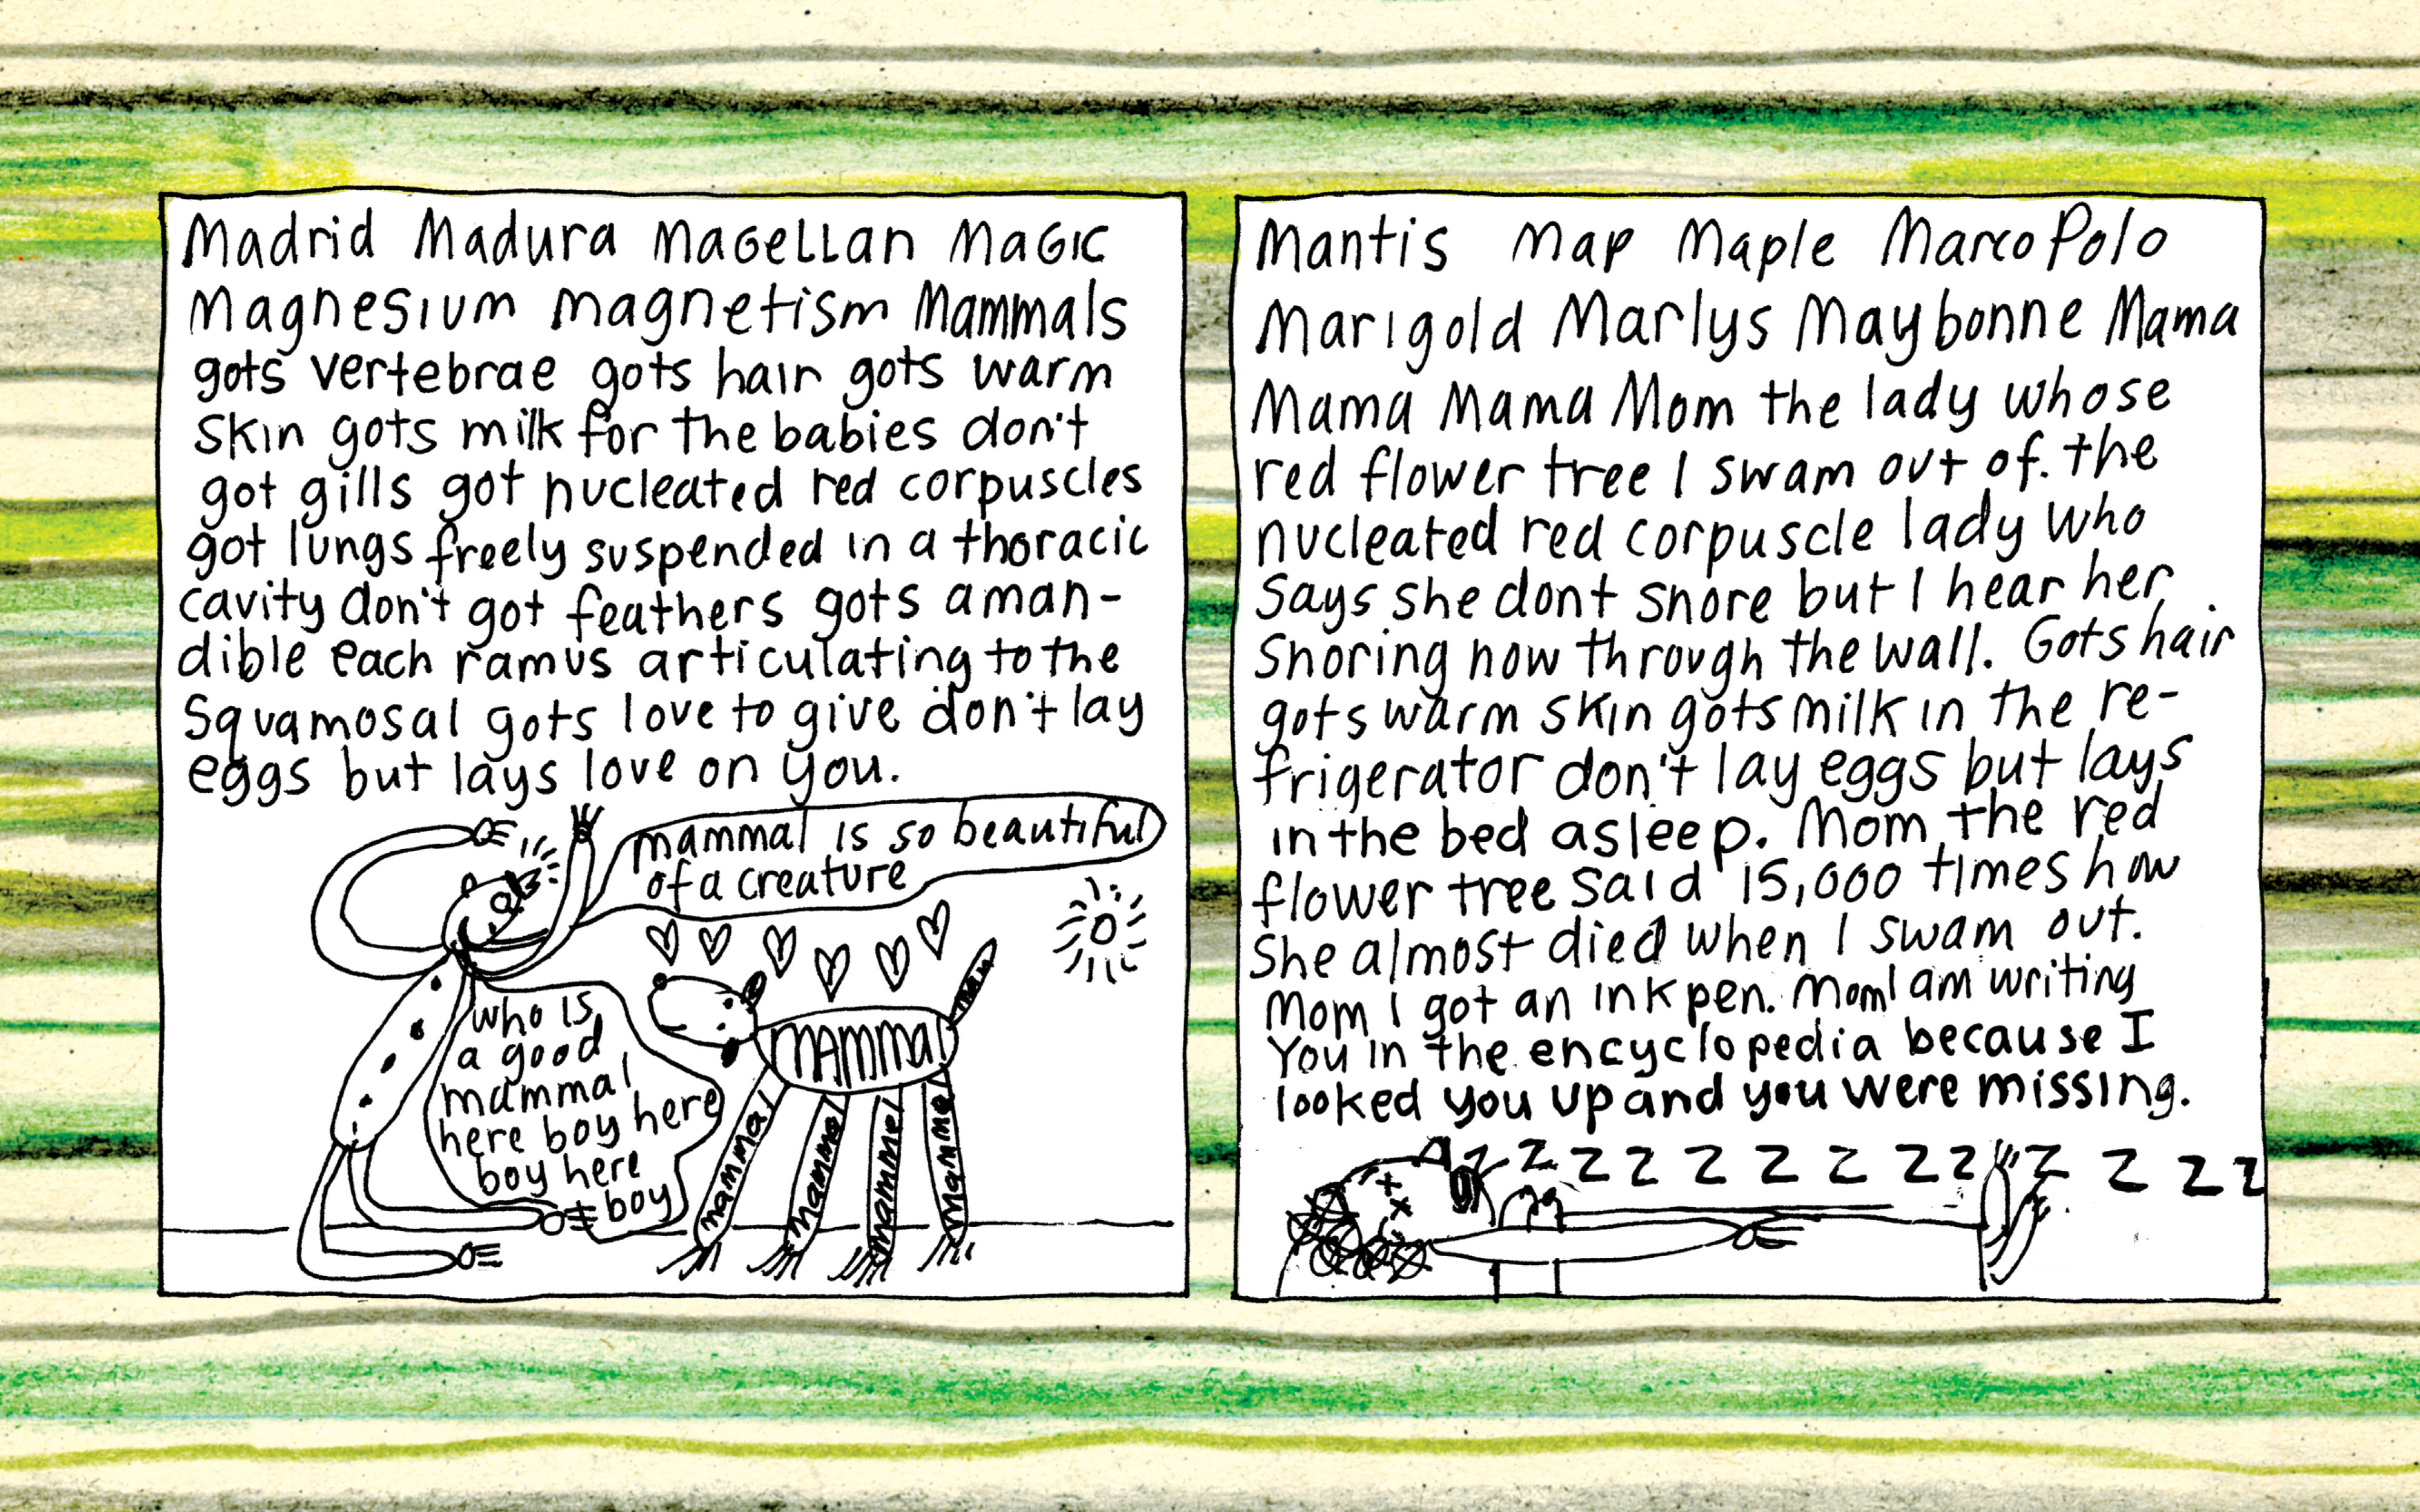 Madrid Madura Magellan Magic
Magnesium magnetism Mammals
gots vertebrae gots hair gots warm
skin gots milk for the babies don't
got gills got nucleated red corpuscles
got lungs freely suspended in a thoracic
cavity don't got feathers gots a man-
dible each ramus articulating to the
squamosal gots love to give don't lay
eggs but lays love on you.
mammal is so beautiful
of a creature
who is
a good
mammal
here boy here
boy here
boy
MAMMAL
mammal
mammal
mammal
mammal
Mantis Map Maple Marco Polo
Marigold Marlys Maybonne Mama
Mama Mama Mom the lady whose
red flower tree I swam out of. the
nucleated red corpuscle lady who
says she dont snore but I hear her
snoring now through the wall. Gots hair
gots warm skin gots milk in the re-
frigerator don't lay eggs but lays
in the bed asleep. Mom the red
flower tree said 15,000 times how
she almost died when I swam out.
Mom I got an ink pen. Mom I am writing
You in the encyclopedia because I
looked you up and you were missing.
z z z z z z z z z z z z z